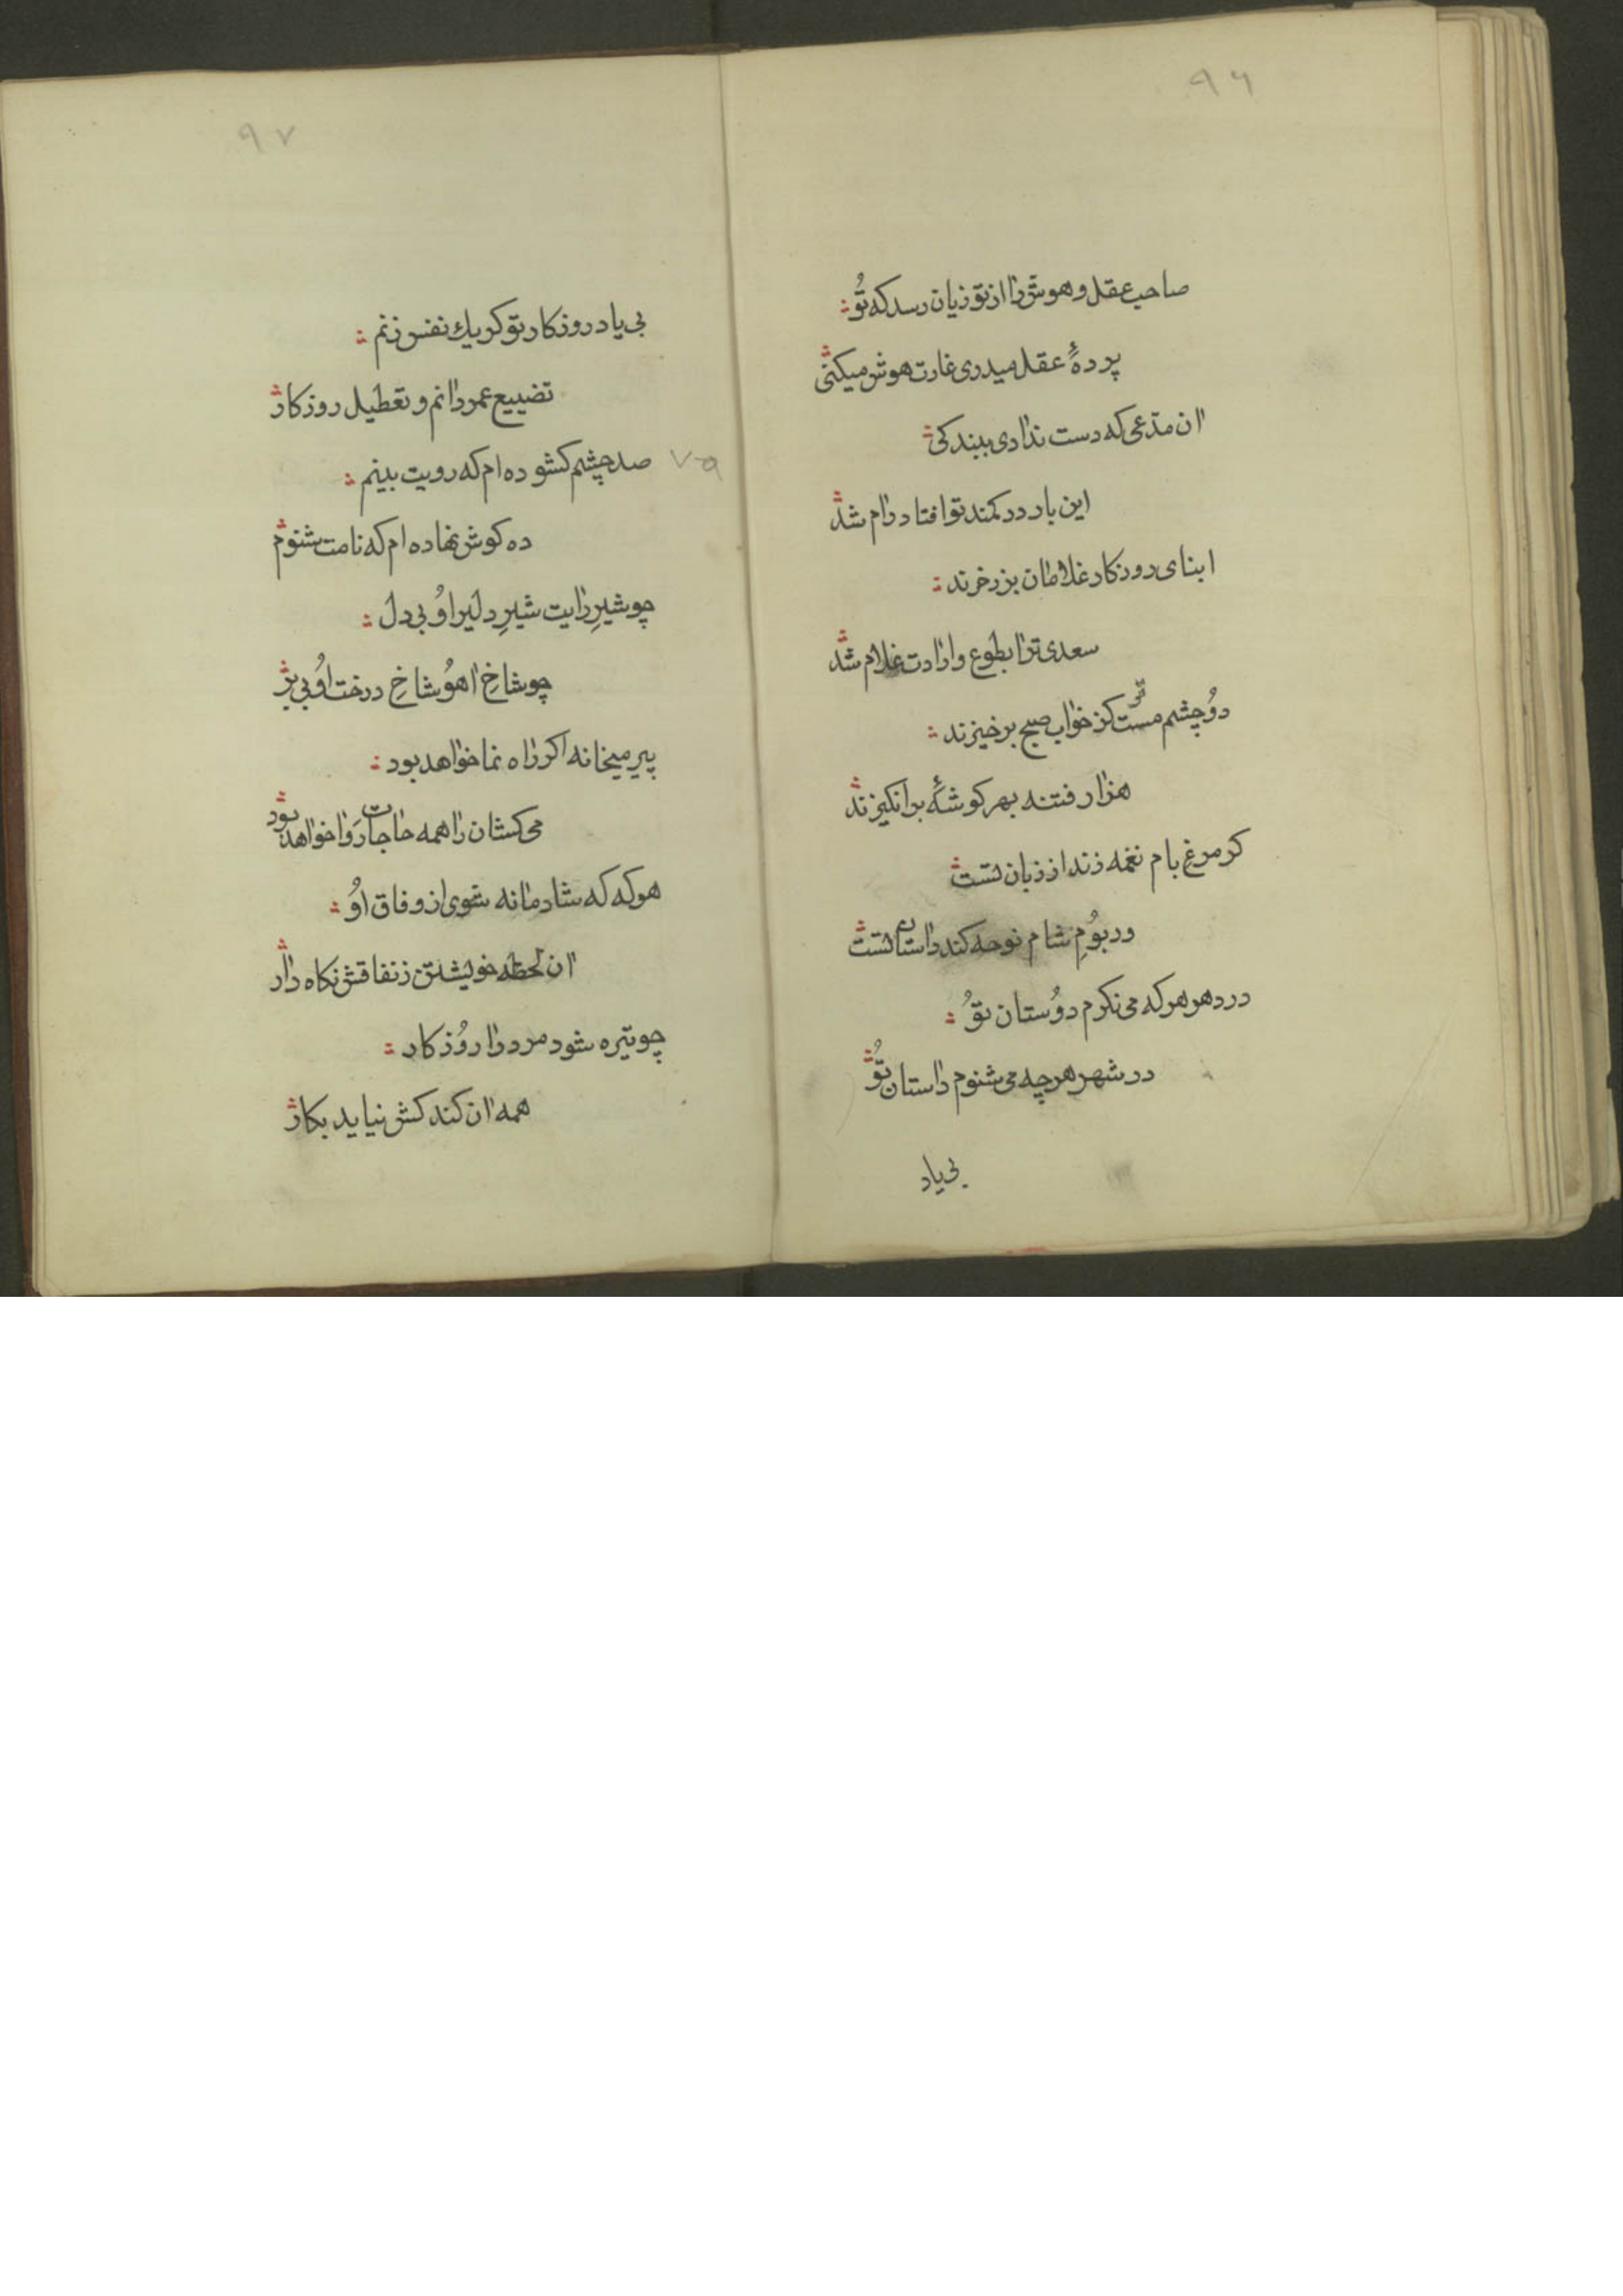 ۹۶
صاحب عقل و هوش را از تو زیان رسد که تُو
پردهٔ عقل میدری غارت هوش میکنی
ان مدّعی که دست ندادی ببند کی
این بار در کمند تو افتاد و رام شد
ابنای روزکار غلامان بزر خرند
سعدی ترا بطوع و ارادت غلام شد
دوُ چشم مست تو کز خواب صبح برخیزند
هزار فتنه بهر کوشهٔ برانکیزند
کر مرغِ بام نغمه زند از زبان تست
ور بوُمِ شام نوحه کند داستان تست
در دهر هر که می نکرم دوُستان توُ
در شهر هر چه می شنوم داستان توُ
بی یاد
۹۷
بی یاد روزکار تو کر یك نفس زنم
تضییع عمر دانم و تعطیل روزکار
صد چشم کشوده ام که رویت بینم
ده کوش نهاده ام که نامت شنوم
چو شیرِ رایت شیرِ دلیر اوُ بی دل
چو شاخِ اهوُ شاخِ درخت اوُ بی بر
پیر میخانه اکر راه نما خواهد بود
می کشان را همه حاجات رَوا خواهد بود
هر که که شادمانه شوی از وفاق اوُ
ان لحظه خویشتن ز نفاقش نکاه دار
چو تیره شود مرد را روُزکار
همه ان کند کش نیاید بکار